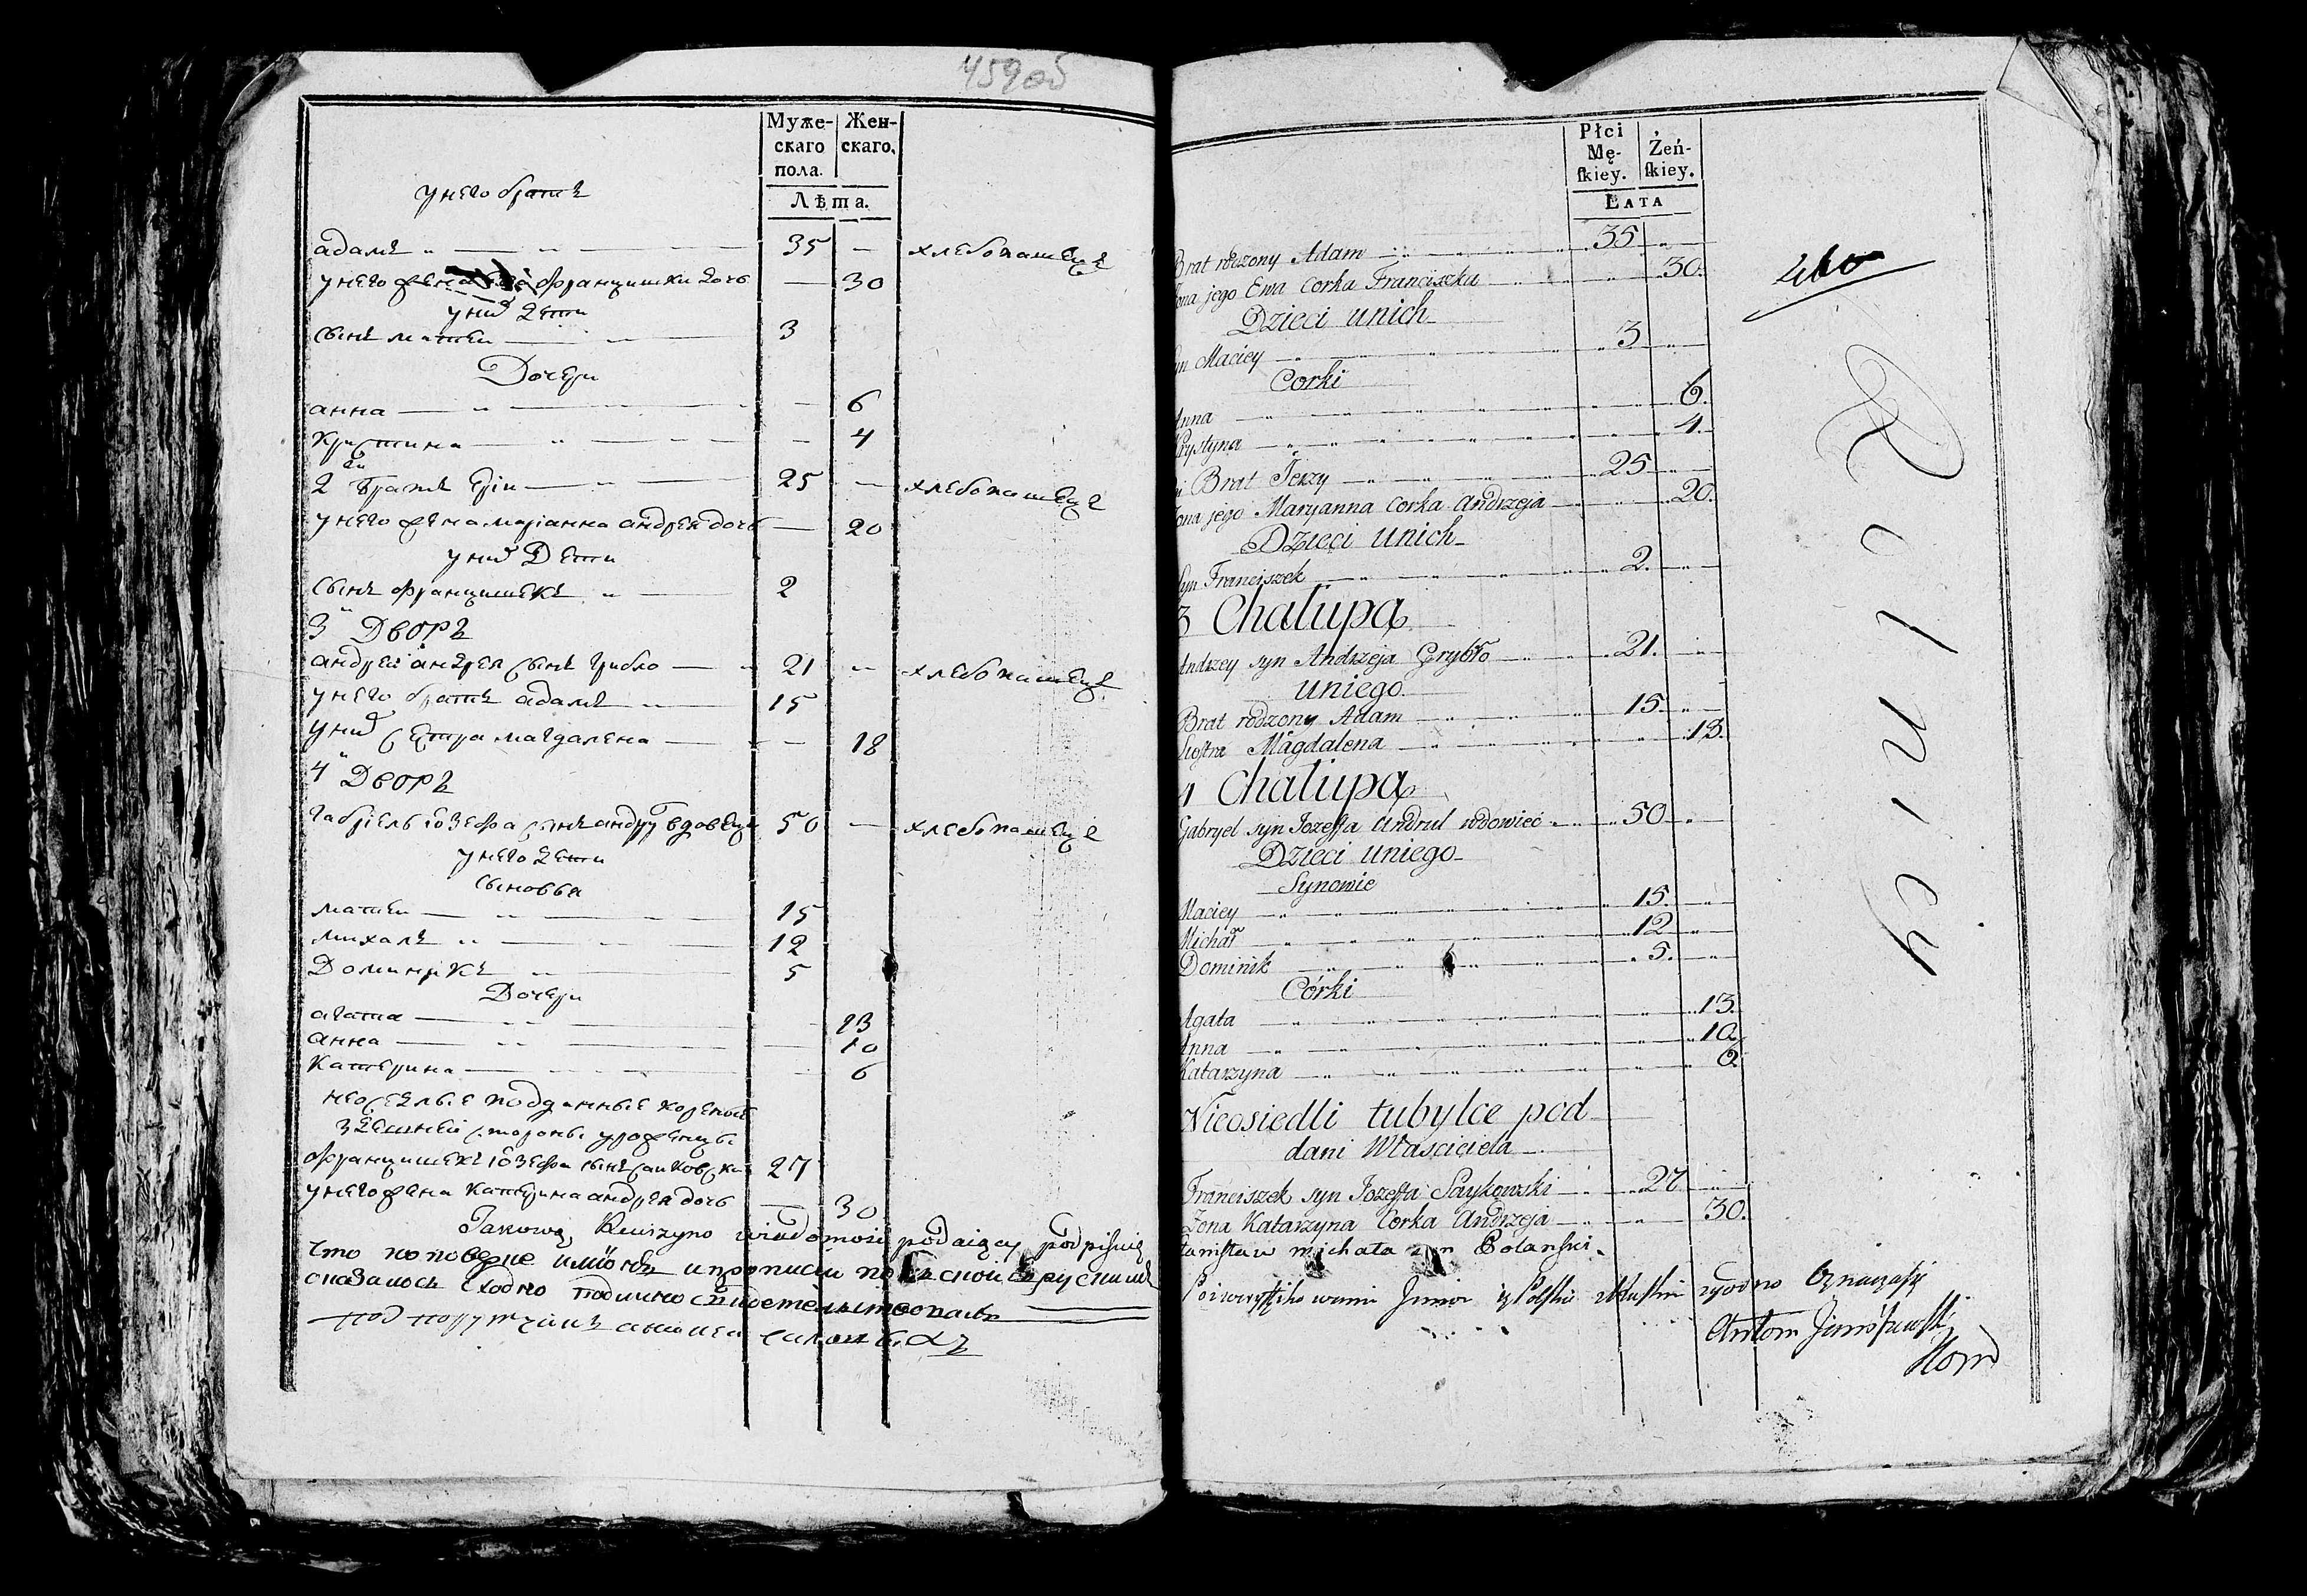 459 об
Муже-
скаго
пола.
Жен-
скаго.
Лѣта.
у него братъ
адамъ 35 — хлебопашецъ
у него жена Францишки дочь — 30
у них дети
сынъ матеи 3
Дочери
анна — 6
Кристина — 4
2й братъ Ерiи 25 — хлебопашецъ
у него жена марiанна андрея дочь — 20
у них Дети
сынъ францишекъ 2
3 Дворъ
андреи андрея сынъ грибло 21 — хлебопашецъ
у него братъ адамъ 15
у них сестра магдалена — 18
4 Дворъ
габрiель iозефа сынъ андрул вдовецъ 50 — хлебопашецъ
у него дети
сыновья
матеи 15
михалъ 12
Доминикъ 5
Дочери
агата 13
анна — 10
Катерина 6
неоселые подданные
зdешнеи стороны уроженцы
францишекъ iозефа сынъ саиковски 27
у него жена Катерина андрея дочь — 30
Takową Rewizyno wiadomość podaiący podpisuię
что по поверке
оказалось сходно
Płci
Mę-
ſkiey.
Żeń-
ſkiey.
Lata
Brat rodzony Adam 35
Żona jego Ewa Corka Franciszka 30.
Dzieci unich
Syn Maciey 3
Corki
Anna 6.
Krystyna 4.
Brat Jerzy 25
Żona jego Maryanna Corka Andrzeja 20.
Dzieci unich
Syn Franciszek 2.
3 Chałupa
Andrzey syn Andrzeja Grybło 21.
uniego
Brat rodzony Adam 15
Siostra Magdalena 18.
4 Chałupa
Gabryel syn Jozeffa Andrul wdowiec 50
Dzieci uniego
Synowie
Maciey 15.
Michał 12
Dominik 5.
Córki
Agata 13.
Anna 10.
Katarzyna 6.
Nieosiedli tubylce pod
dani Właściciela
Franciszek syn Jozeffa Saykowski 27
Żona Katarzyna Corka Andrzeja 30.
Stanisław michała syn Bolanski
zgodno
Antoni
460